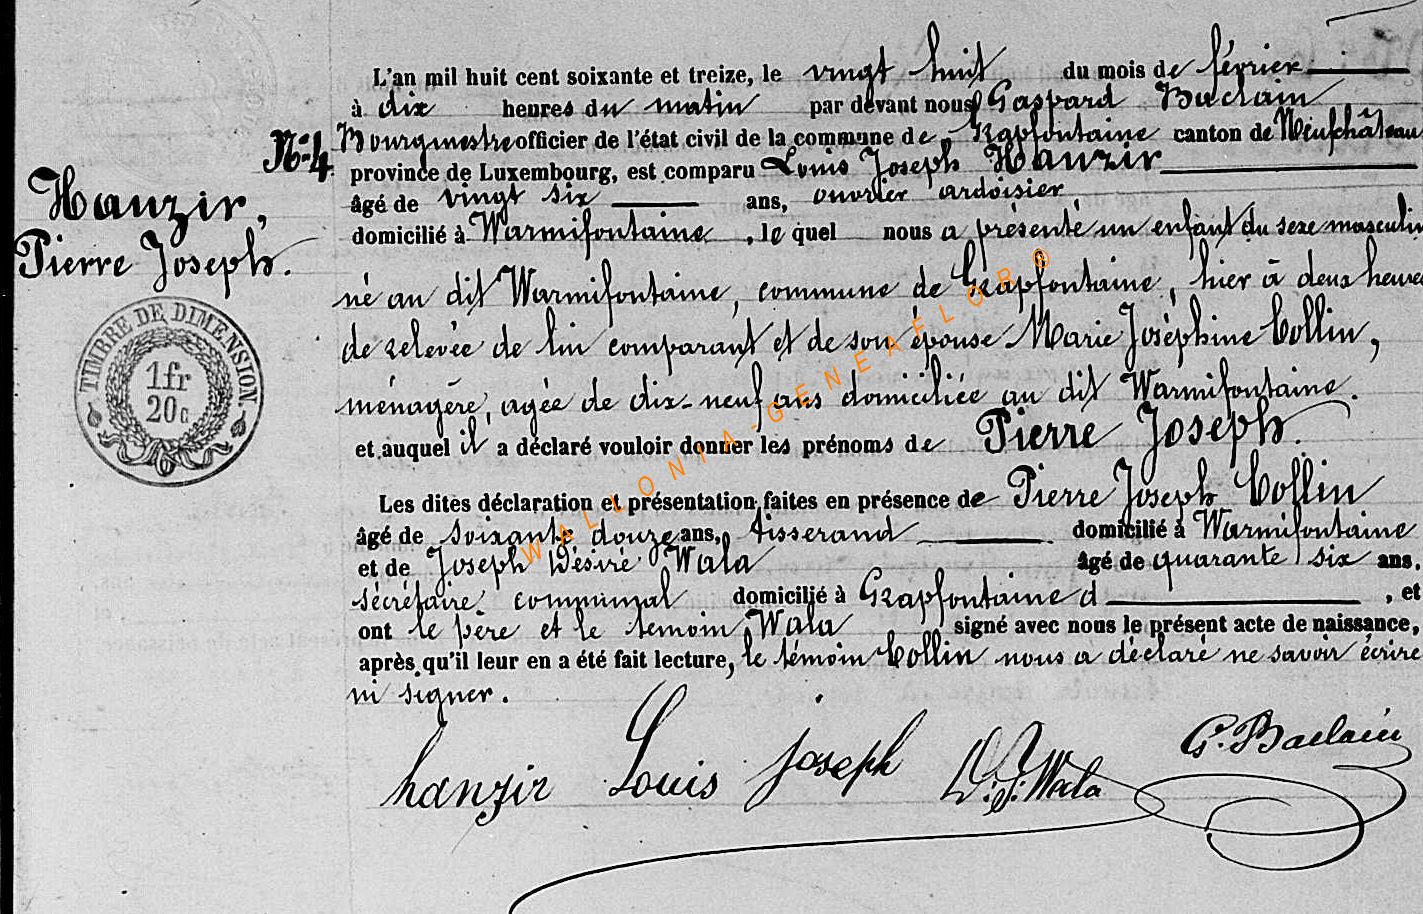 L'an mil huit cent soixante et treize, le vingt huit du mois de février
à dix heures du matin par devant nous Gaspard Baclain
N° 4
Bourgmestre officier de l'état civil de la commune de Grapfontaine canton de Neufchâteau
province de Luxembourg, est comparu Louis Joseph Hanzir
Hanzir,
Pierre Joseph.
âgé de vingt six ans, ouvrier ardoisier
domicilié à Warmifontaine, le quel nous a présenté un enfant du sexe masculin
né au dit Warmifontaine, commune de Grapfontaine, hier à deux heures
de relevée de lui comparant et de son épouse Marie Joséphine Collin,
TIMBRE DE DIMENSION
1fr
20c
ménagère, agée de dix-neuf ans domiciliée au dit Warmifontaine.
et auquel il a déclaré vouloir donner les prénoms de Pierre Joseph.
Les dites déclaration et présentation faites en présence de Pierre Joseph Collin
âgé de soixante douze ans, tisserand domicilié à Warmifontaine
et de Joseph Désiré Wala âgé de quarante six ans,
secrétaire communal domicilié à Grapfontaine d , et
ont le père et le témoin Wala signé avec nous le présent acte de naissance,
après qu'il leur en a été fait lecture, le témoin Collin nous a déclaré ne savoir écrire
ni signer.
hanzir Louis joseph D. J. Wala G. Baclain
WALLONIA-GENEAFLORE